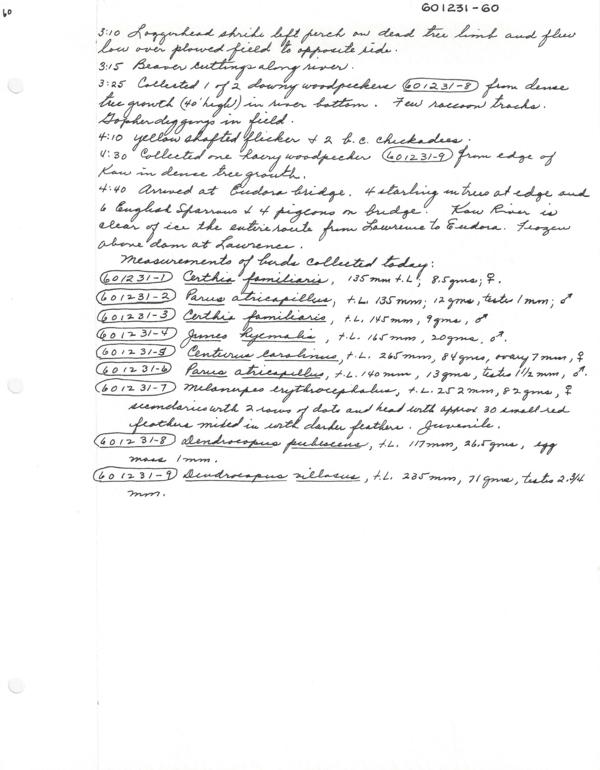 60
601231-60
3:10 Loggerhead shrike left perch on dead tree limb and flew
low over plowed field to opposite side.
3:15 Beaver cuttings along river.
3:25 Collected 1 of 2 downy woodpeckers (601231-8) from dense
tree growth (40' high) in river bottom. Few raccoon tracks.
Gopher diggings in field.
4:10 yellow shafted flicker & 2 b.c. chickadees.
4:30 Collected one hairy woodpecker (601231-9) from edge of
Kaw in dense tree growth.
4:40 Arrived at Eudora bridge. 4 starling in trees at edge and
6 English Sparrows & 4 pigeons on bridge. Kaw River is
clear of ice the entire route from Lawrence to Eudora. Frozen
above dam at Lawrence.
Measurements of birds collected today:
(601231-1) Certhia familiaris, 135 mm t.L.; 8.5 gms; ♀.
(601231-2) Parus atricapillus, t.L. 135 mm; 12 gms, testis 1 mm; ♂
(601231-3) Certhia familiaris, t.L. 145 mm, 9 gms, ♂
(601231-4) Junco hyemalis, t.L. 165 mm, 20 gms, ♂.
(601231-5) Centurus carolinus, t.L. 265 mm, 84 gms, ovary 7 mm, ♀
(601231-6) Parus atricapillus, t.L. 140 mm, 13 gms, testis 1 1/2 mm, ♂.
(601231-7) Melanerpes erythrocephalus, t.L. 252 mm, 82 gms, ♀
secondaries with 2 rows of dots and head with approx 30 small red
feathers mixed in with darker feathers. Juvenile.
(601231-8) Dendrocopus pubescens, t.L. 117 mm, 26.5 gms, egg
mass 1 mm.
(601231-9) Dendrocopus villosus, t.L. 235 mm, 71 gms, testis 2 3/4
mm.